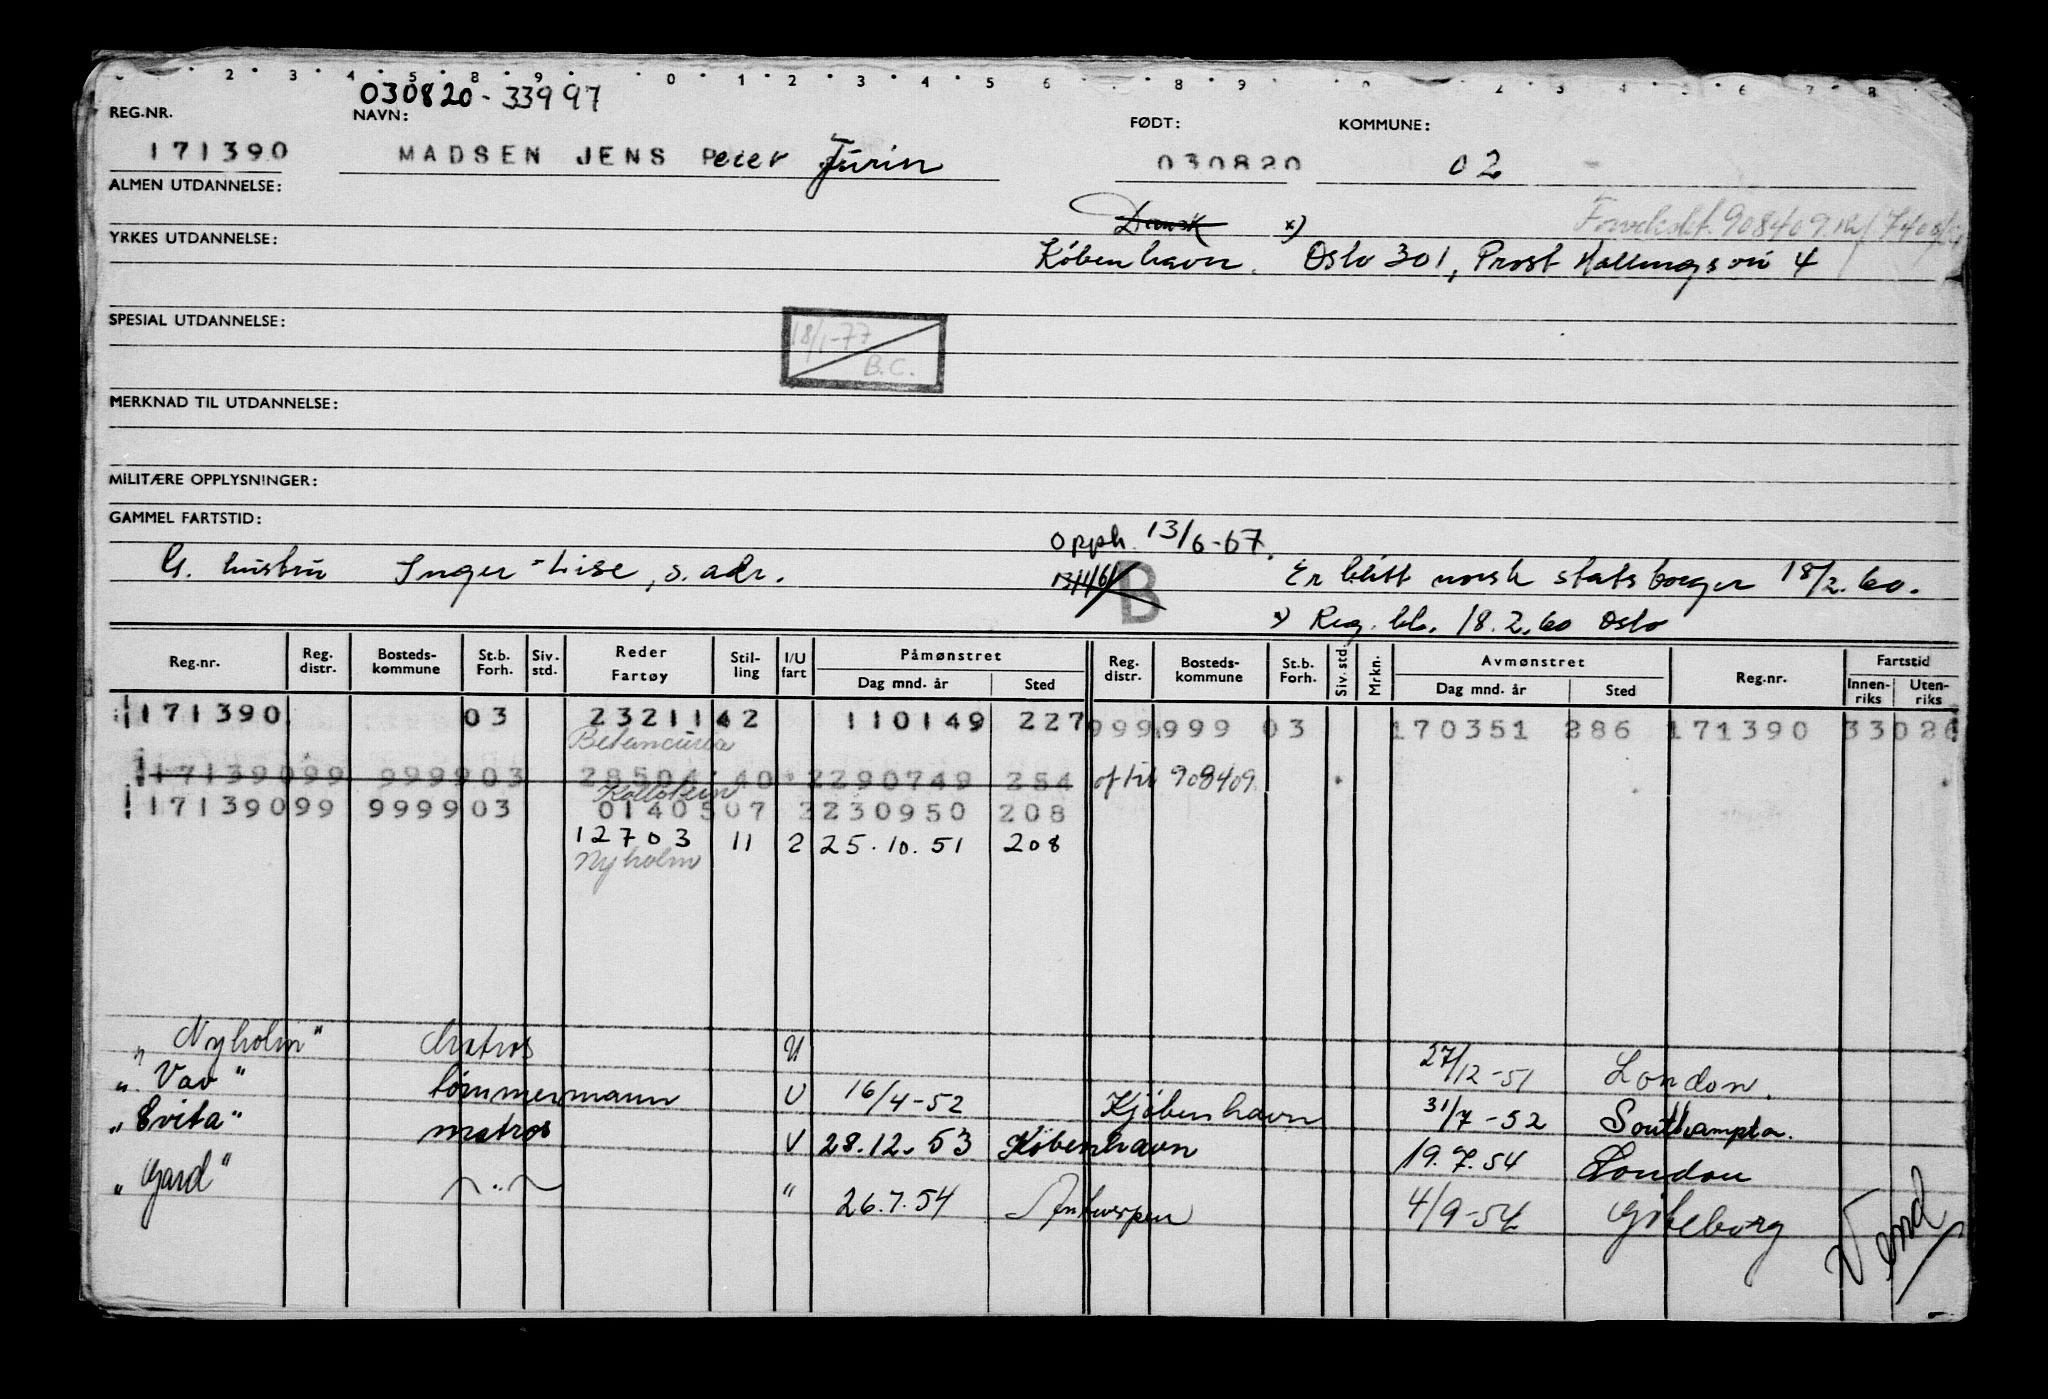 2 3 4 5 8 9 0 1 2 3 4 5 6 8 9 2 3 4 5 6 7 8
030820-33997
REG.NR. NAVN: FØDT: KOMMUNE:
171390 MADSEN JENS Peter Jurin 030820 02
ALMEN UTDANNELSE:
Dansk x) 908409
YRKES UTDANNELSE:
København. Oslo 301, Prost Hallings vei 4
SPESIAL UTDANNELSE:
18/1-77
B.C.
MERKNAD TIL UTDANNELSE:
MILITÆRE OPPLYSNINGER:
GAMMEL FARTSTID:
Opph. 13/6-67.
G. hustru Inger-Lise, s. adr. B Er blitt norsk statsborger 18/2.60.
x) Reg. bl. 18.2.60 Oslo
Reg.nr. Reg. distr. Bosteds-kommune St.b. Forh. Siv. std. Reder Fartøy Stil-ling I/U fart Påmønstret Dag mnd. år Sted Reg. distr. Bosteds-kommune St.b. Forh. Siv. std. Mrkn. Avmønstret Dag mnd. år Sted Reg.nr. Fartstid Innen-riks Uten-riks
171390 03 2321142 110149 227 999 999 03 170351 286 171390 33026
Betancuria
17139099 999903 28504 40 2290749 284 of til 908409
Kollstein
17139099 999903 0140507 3230950 208
12703 11 2 25.10.51 208
Nyholm
"Nyholm" Matros U 27/12-51 London.
"Vav" tømmermann U 16/4-52 Kjøbenhavn 31/7-52 Southampton.
"Evita" matros U 28.12.53 København 19.7.54 London
"Gard" " " 26.7.54 Antwerpen 4/9-54 Göteborg
Vend